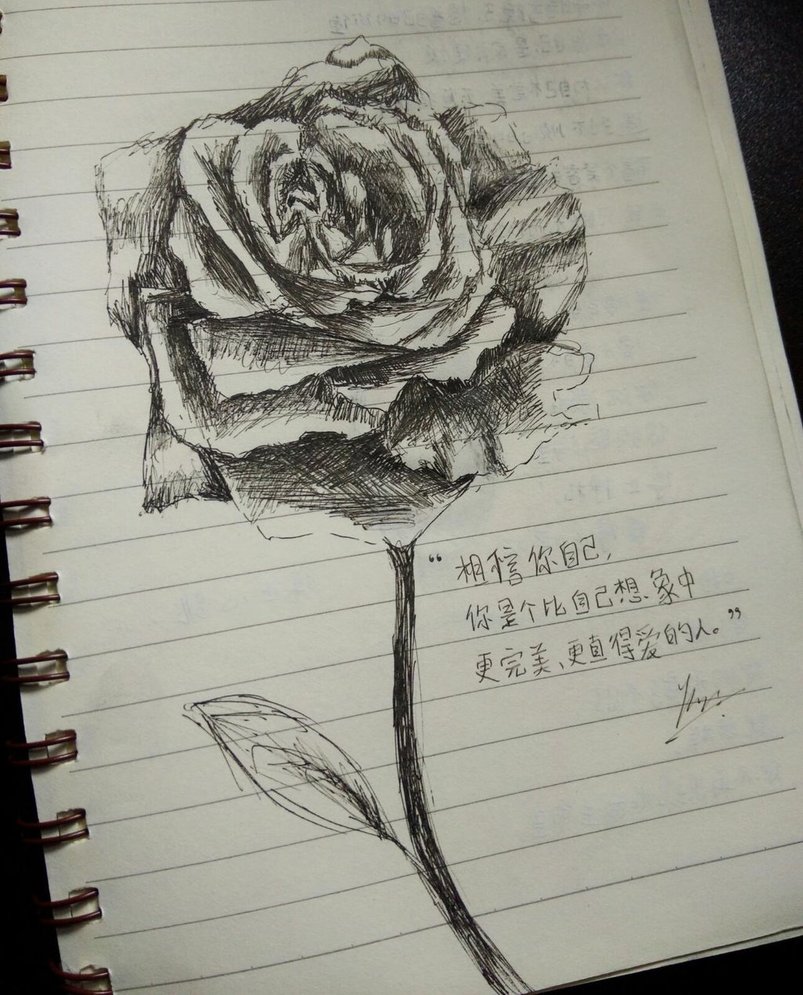 “相信你自己,
你是个比自己想象中
更完美、更值得爱的人。”